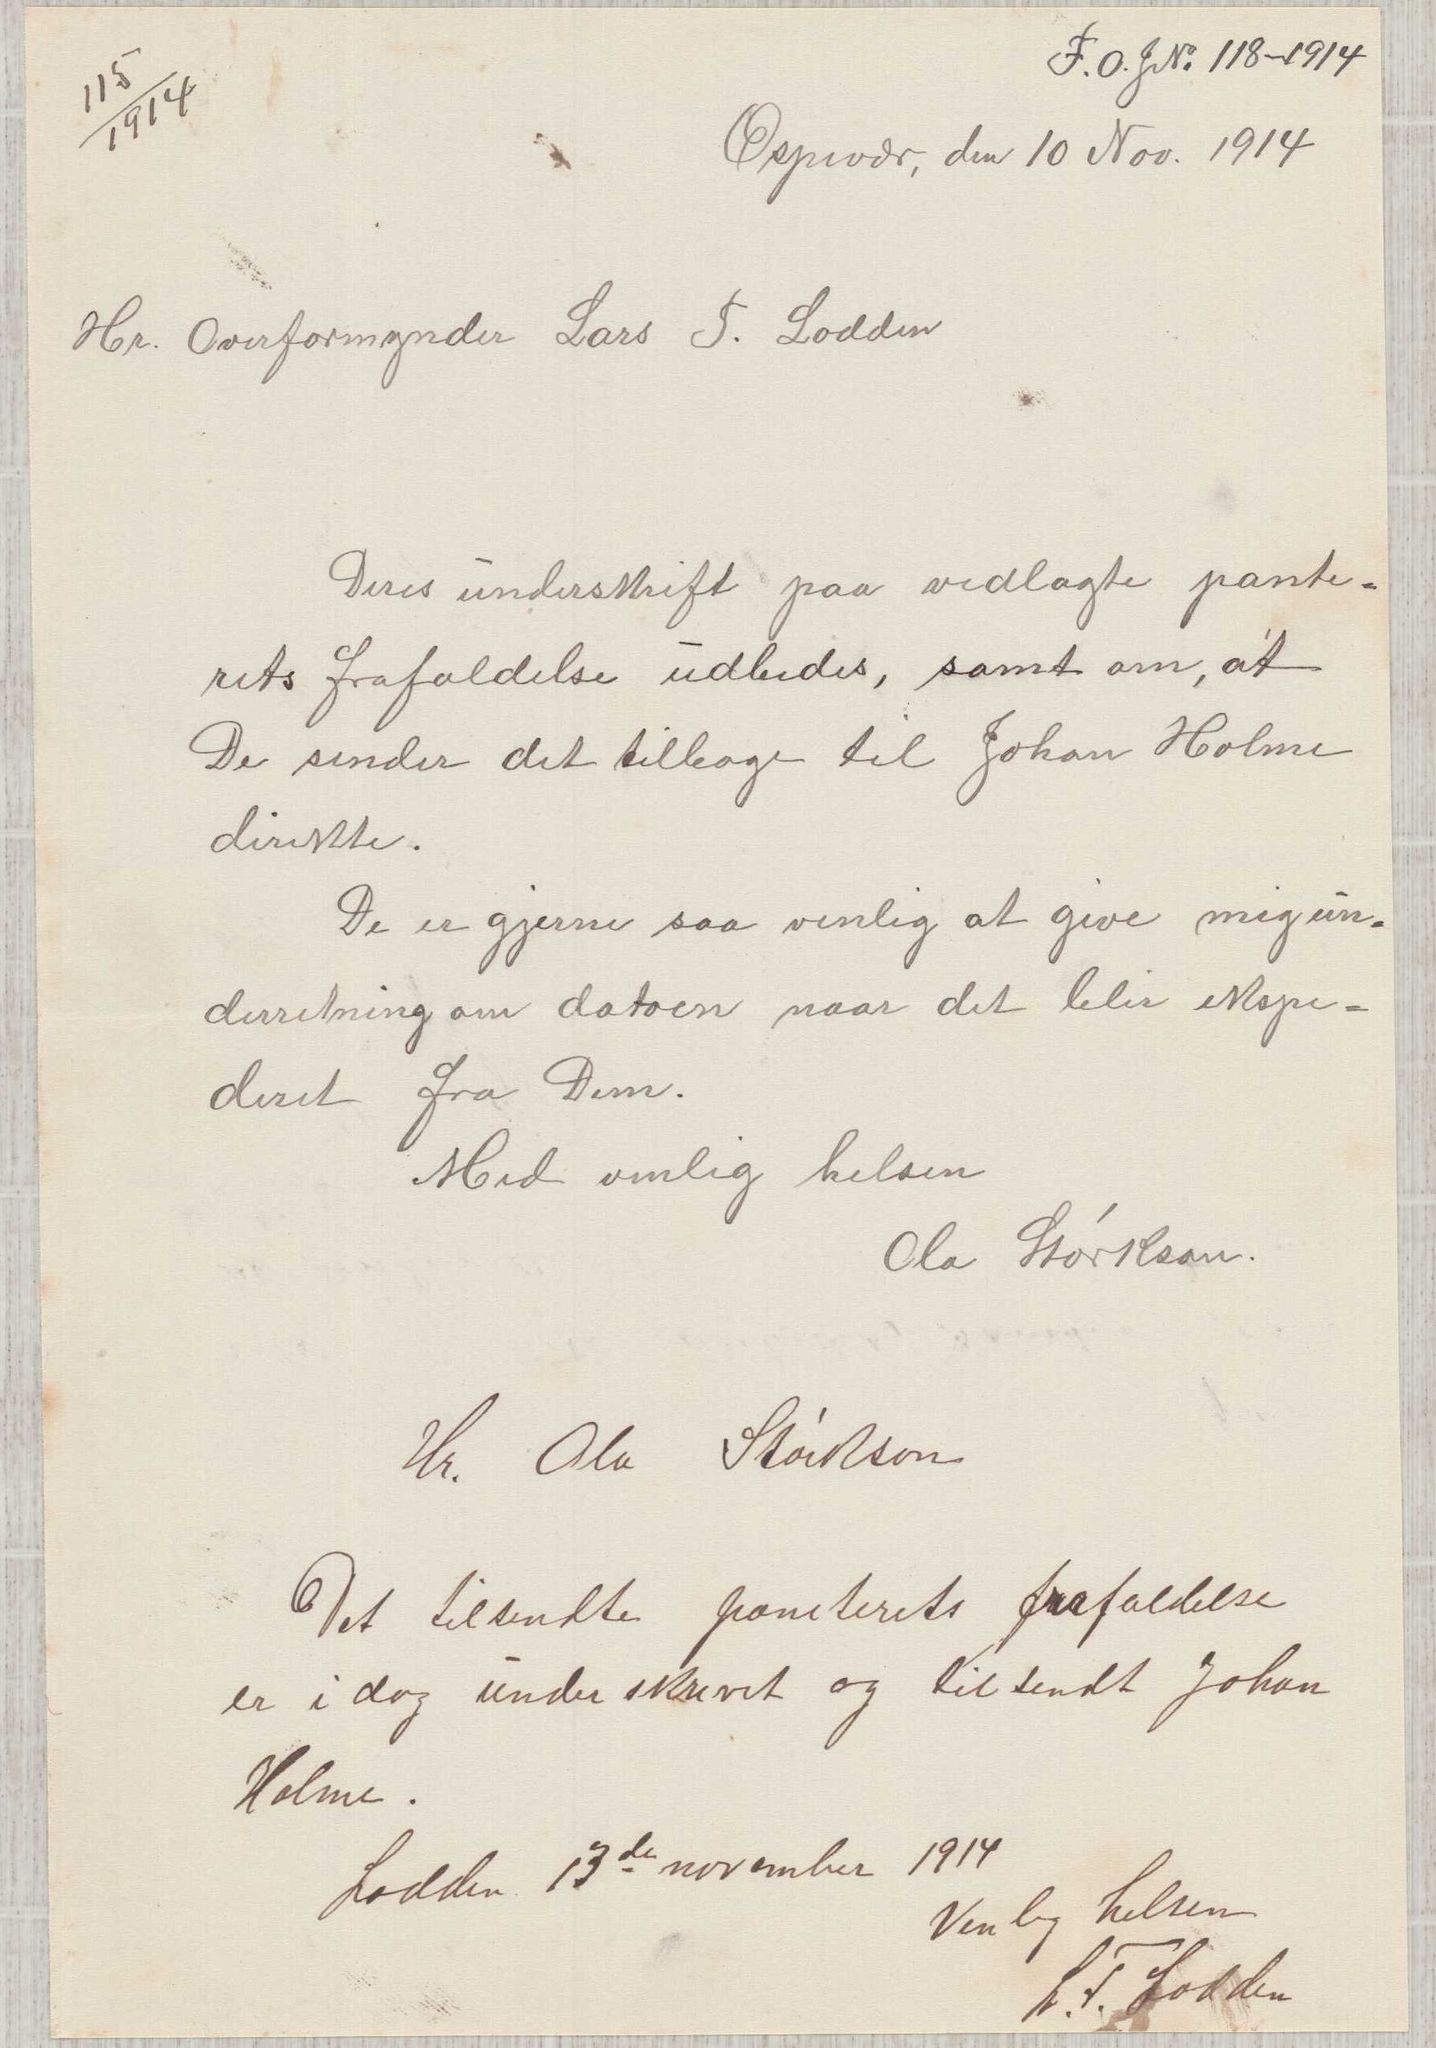 115
1914
F. O. J№. 118-1914
Espevær, den 10 Nov. 1914
Hr. Overformynder Lars T. Lodden
Deres underskrift paa vedlagte pante-
rets frafaldelse udbedes, samt om, at
De sender det tilbage til Johan Holme
direkte.
De er gjerne saa venlig at give mig un-
derretning om datoen naar det blir ekspe-
deret fra Dem.
Med venlig helsen
Ola Størkson.
Hr. Ola Størkson
Det tilsendte panterets frafaldelse
er i dag underskrevet og tilsendt Johan
Holme.
Lodden 13de november 1914
Venlig helsen
L. T. Lodden